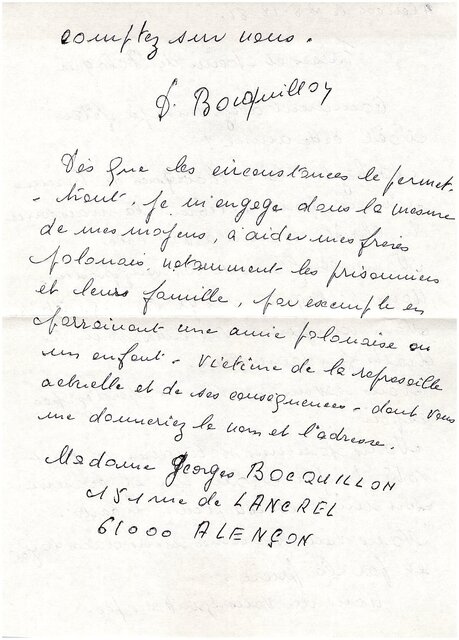 comptez sur nous.
D. Bocquillon
Dès que les circonstances le permet-
-tront, je m'engage dans la mesure
de mes moyens, à aider mes frères
polonais, notamment les prisonniers
et leurs famille, par exemple en
parrainant une amie polonaise ou
un enfant - victime de la represaille
actuelle et de ses conséquences - dont vous
me donneriez le nom et l'adresse.
Madame Georges BOCQUILLON
151 rue de LANCREL
61000 ALENÇON